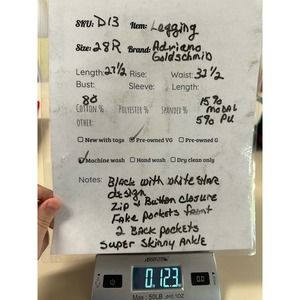 SKU: D13 Item: Legging
Size: 28R Brand: Adriano Goldschmib
Length: 27 1/2 Rise: Waist: 32 1/2
Bust: Sleeve: Length:
80 15% MODAL
COTTON % POLYESTER % SPANDEX %
OTHER: 5% PU
New with tags Pre-owned VG Pre-owned G
Machine wash Hand wash Dry clean only
Notes: Black with white star
design
Zip & Button closure
Fake pockets front
2 Back pockets
Super Skinny Ankle
0.12.3
MAX : 50LB